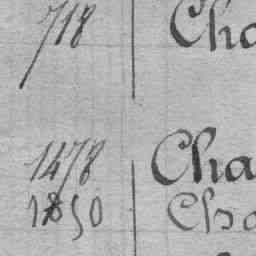 718 Cha
1478 Cha
1850 Cha